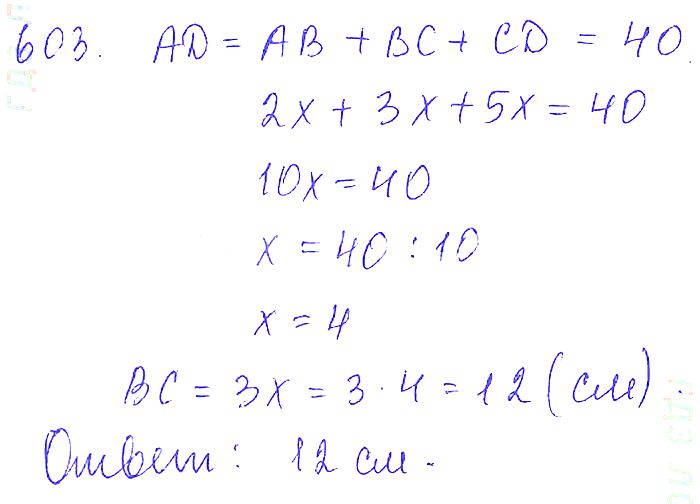 603. AD = AB + BC + CD = 40.
2x + 3x + 5x = 40
10x = 40
x = 40 : 10
x = 4
BC = 3x = 3 · 4 = 12 (см).
Ответ: 12 см.